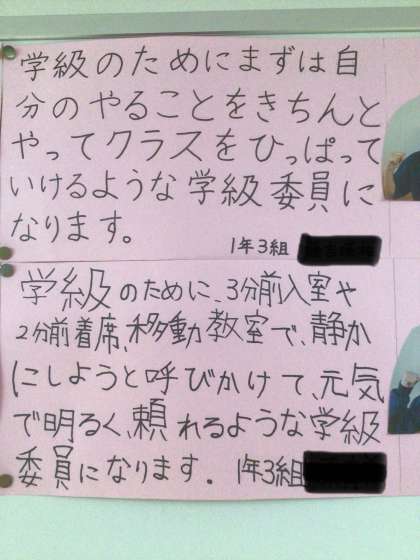 学級のためにまずは自
分のやることをきちんと
やってクラスをひっぱって
いけるような学級委員に
なります。
1年3組
学級のために、3分前入室や
2分前着席、移動教室で、静か
にしようと呼びかけて、元気
で明るく、頼れるような学級
委員になります。1年3組